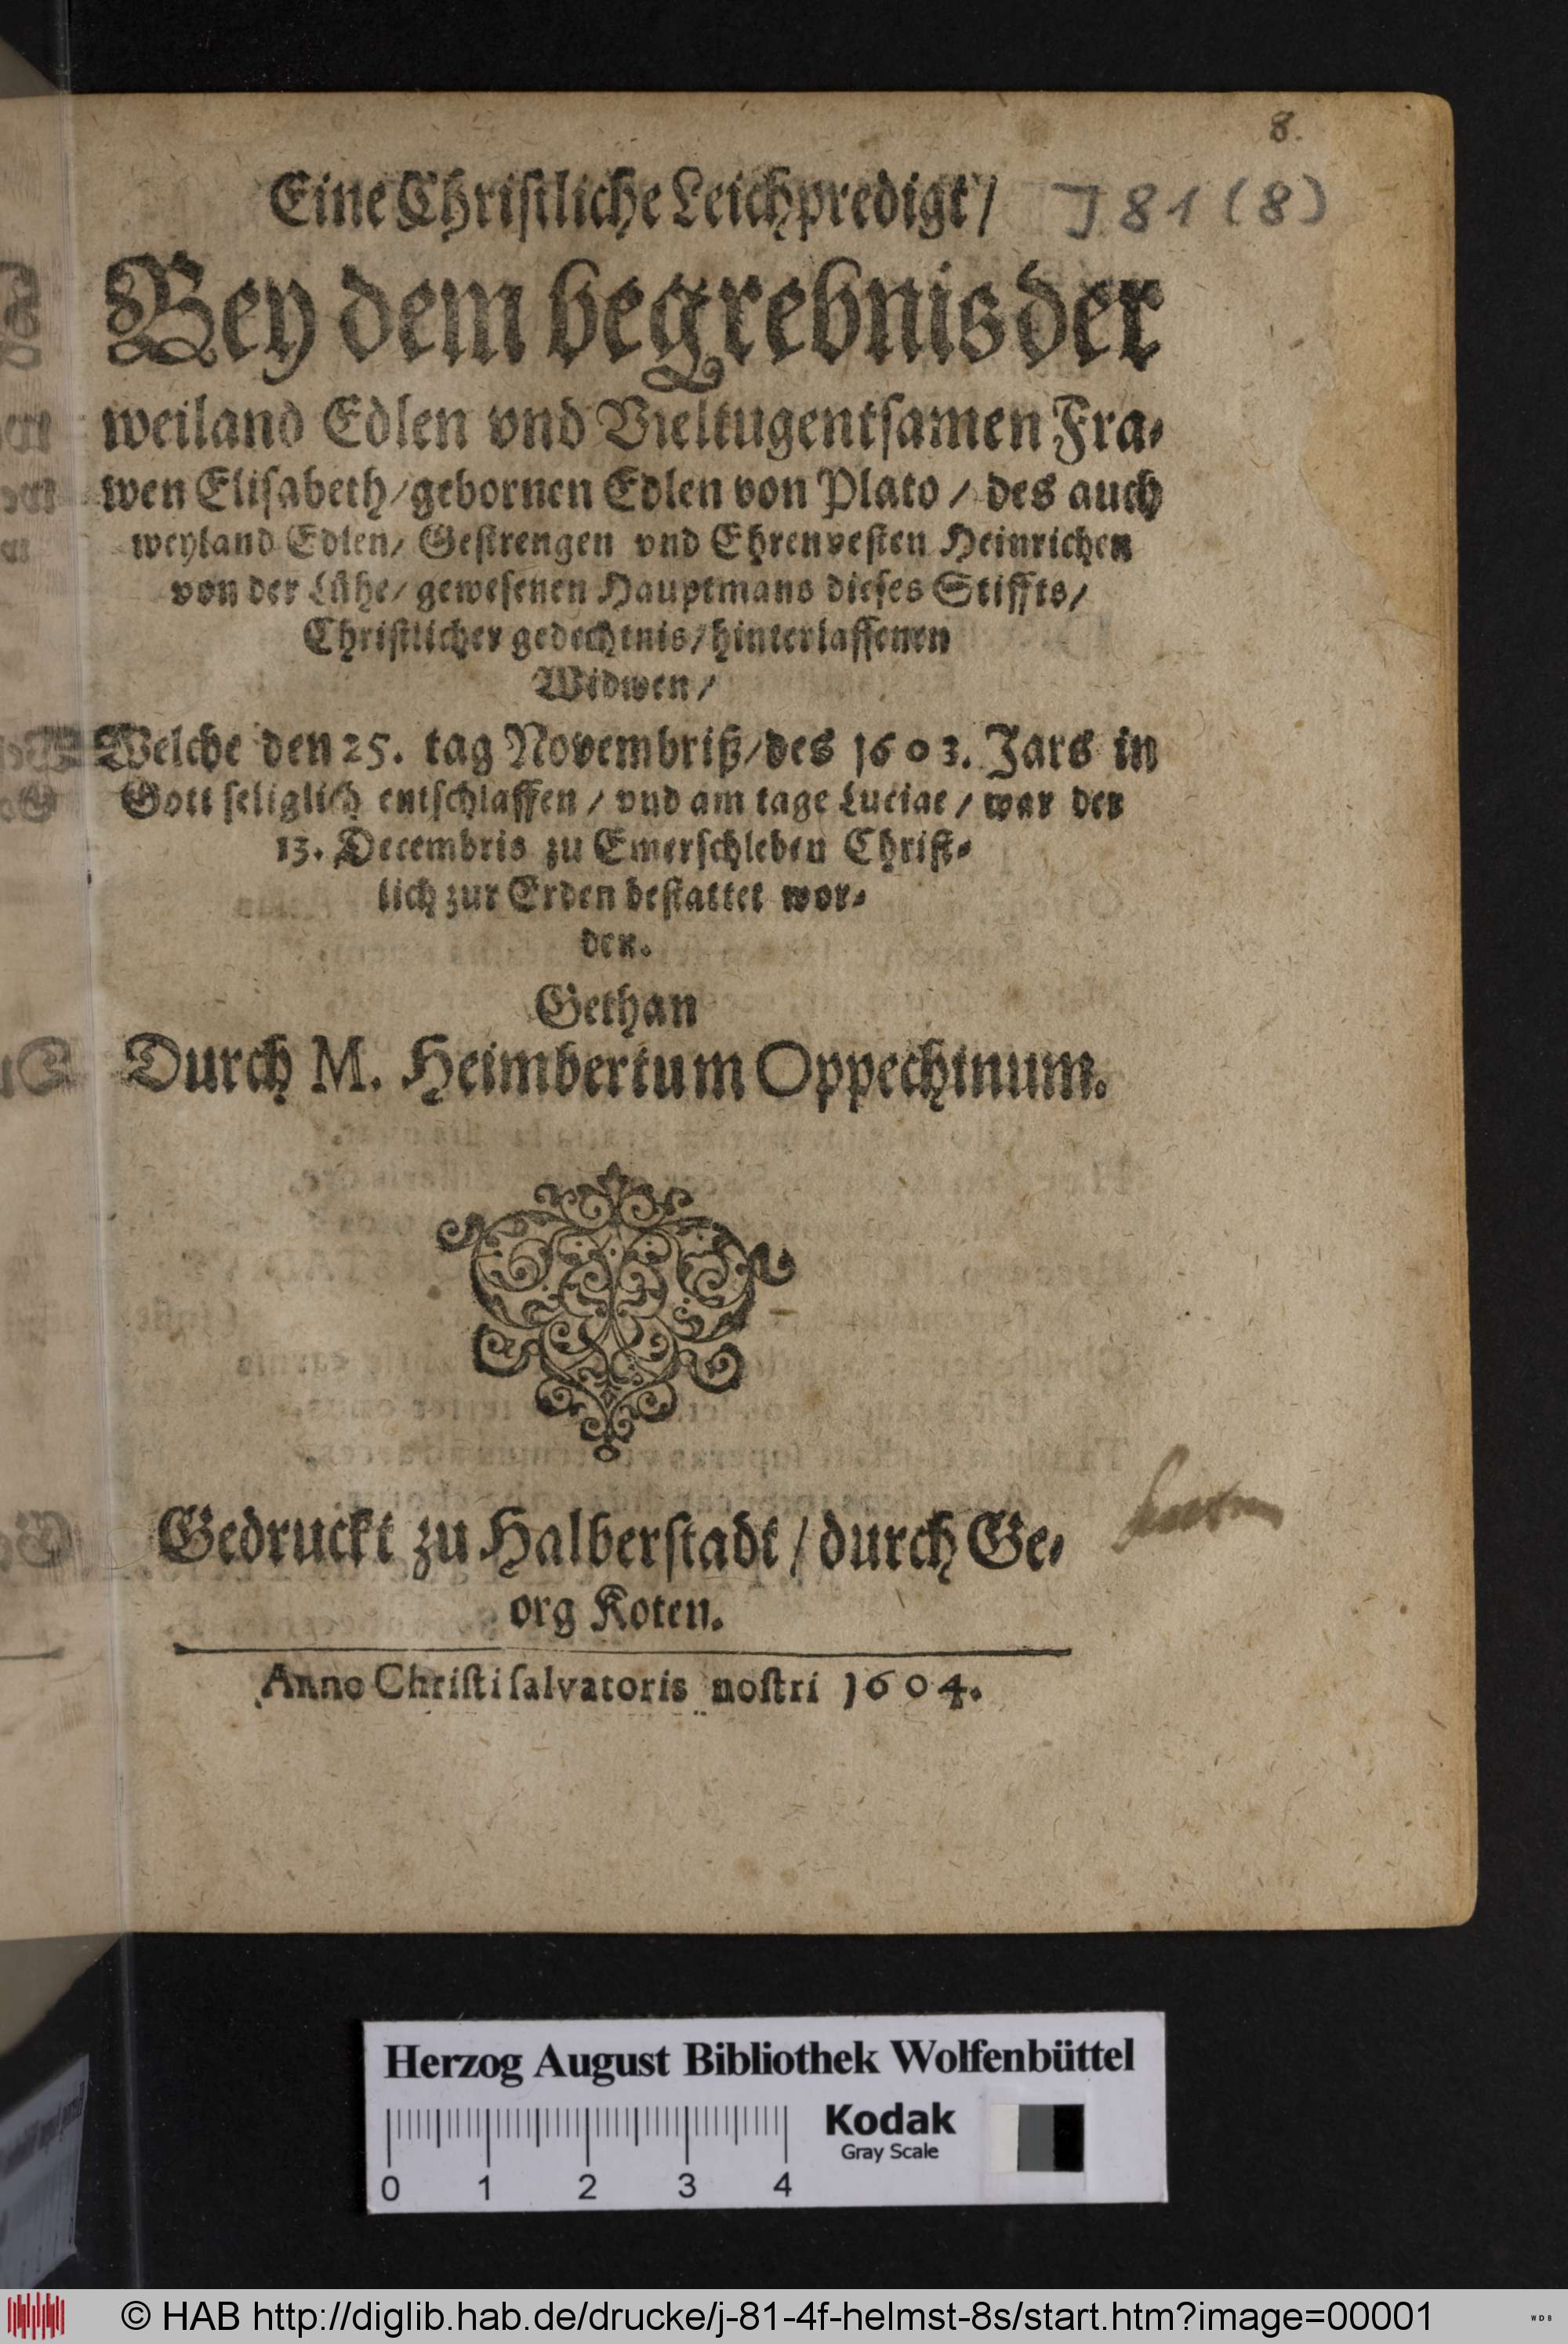 8.
Eine Christliche Leichpredigt /
J 81 (8)
Bey dem begrebnis der
weiland Edlen vnd Vieltugentsamen Fra-
wen Elisabeth / gebornen Edlen von Plato / des auch
weyland Edlen / Gestrengen vnd Ehrenvesten Heinrichen
von der Lühe / gewesenen Hauptmans dieses Stiffts /
Christlicher gedechtnis / hinterlassenen
Widwen /
Welche den 25. tag Novembriß / des 1603. Jars in
Gott seliglich entschlaffen / vnd am tage Luciae / war der
13. Decembris zu Emerschleben Christ-
lich zur Erden bestattet wor-
den.
Gethan
Durch M. Heimbertum Oppechinum.
Gedruckt zu Halberstadt / durch Ge-
org Koten.
Anno Christi salvatoris nostri 1604.
Herzog August Bibliothek Wolfenbüttel
Kodak
Gray Scale
0 1 2 3 4
© HAB http://diglib.hab.de/drucke/j-81-4f-helmst-8s/start.htm?image=00001
WDB